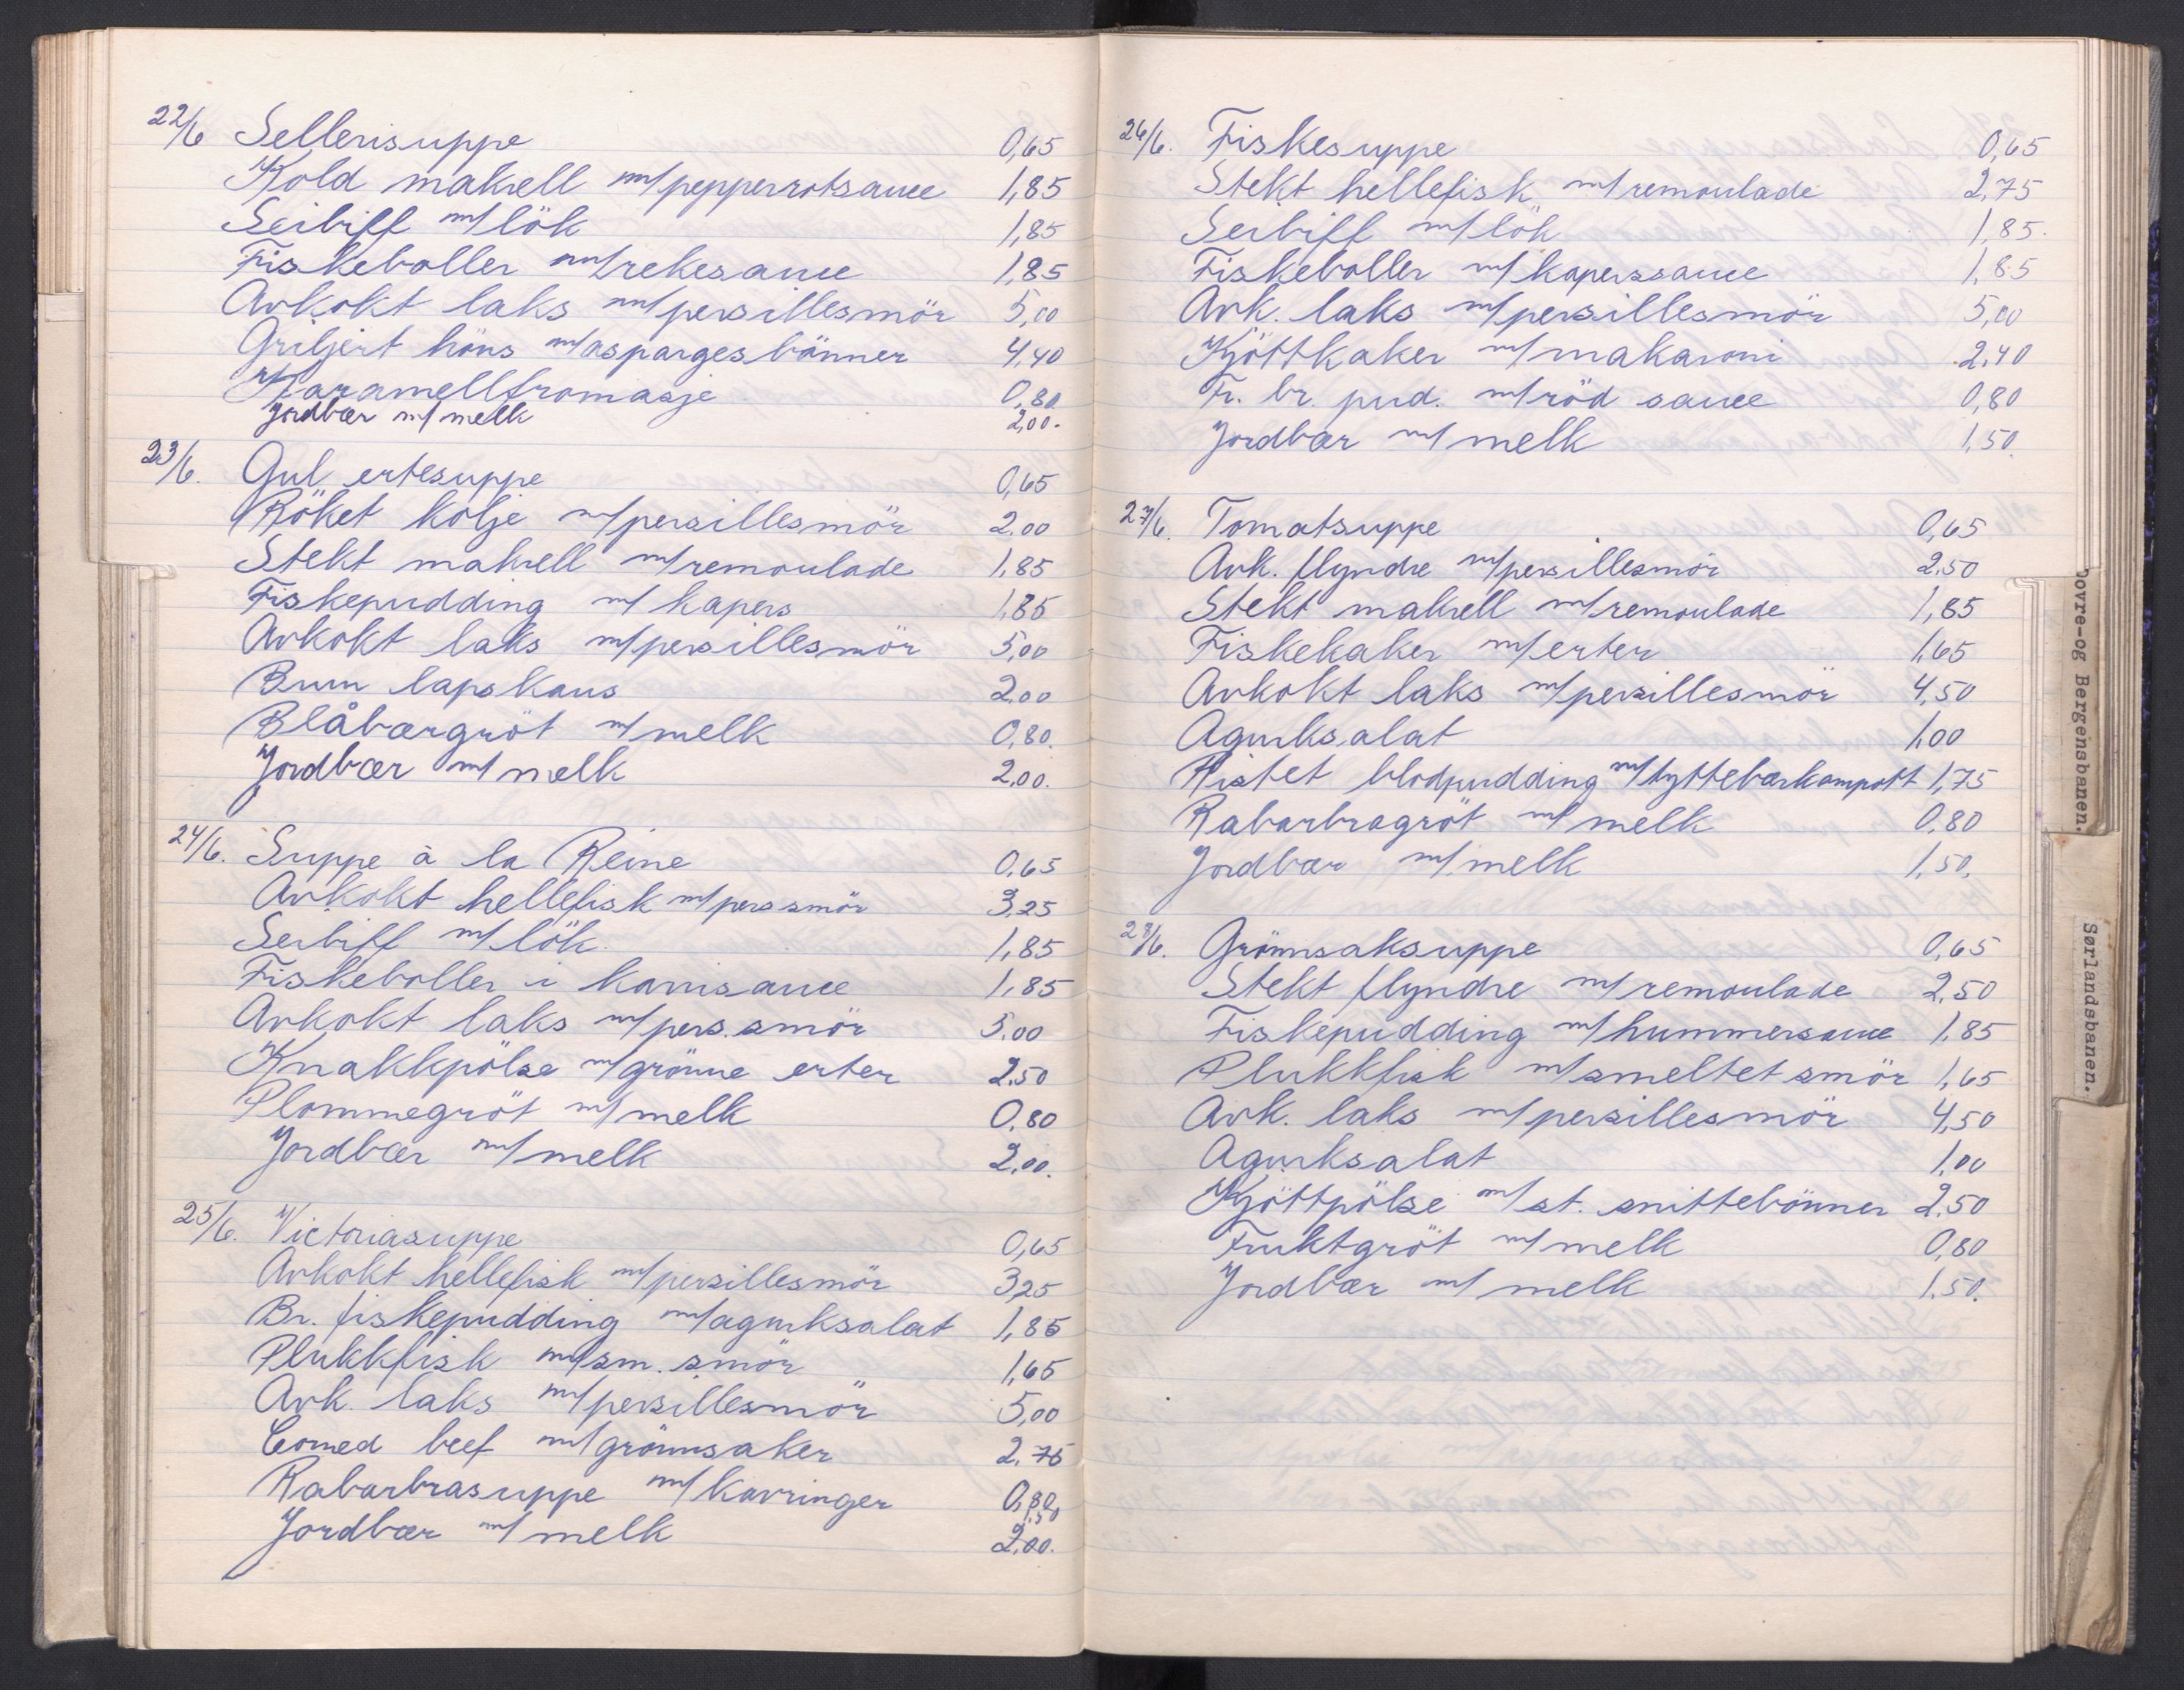 22/6 Sellerisuppe 0,65
Kold makrell m/pepperrotsauce 1,85
Seibiff m/lök 1,85
Fiskeboller m/rekesauce 1,85
Avkokt laks m/persillesmör 5,00
Griljert höns m/aspargesbönner 4,40
Karamellfromasje 0,80
Jordbær m/melk 2,00.
23/6. Gul ertesuppe 0,65
Röket kolje m/persillesmör 2,00
Stekt makrell m/remoulade 1,85
Fiskepudding m/kapers 1,85
Avkokt laks m/persillesmör 5,00
Brun lapskaus 2,00
Blåbærgröt m/melk 0,80.
Jordbær m/melk 2,00.
24/6. Suppe à la Reine 0,65
Avkokt hellefisk m/pers smör 3,25
Seibiff m/lök. 1,85
Fiskeboller i karrisauce 1,85
Avkokt laks m/pers. smör 5,00
Knakkpölse m/grönne erter 2,50
Plommegröt m/melk 0,80
Jordbær m/melk 2,00.
25/6. Victoriasuppe 0,65
Avkokt hellefisk m/persillesmör 3,25
Br. fiskepudding m/agurksalat 1,85
Plukkfisk m/sm. smör 1,65
Avk. laks m/persillesmör 5,00
Corned beef m/grönnsaker 2,75
Rabarbrasuppe m/kavringer 0,80,
1,50
Jordbær m/melk 2,00.
26/6. Fiskesuppe 0,65
Stekt hellefisk m/remoulade 2,75
Seibiff m/lök 1,85.
Fiskeboller m/kaperssauce 1,85
Avk. laks m/persillesmör 5,00
Kjöttkaker m/makaroni 2,40
Fr. br. pud. m/röd sauce 0,80
Jordbær m/melk 1,50.
27/6. Tomatsuppe 0,65
Avk. flyndre m/persillesmör 2,50
Stekt makrell m/remoulade 1,85
Fiskekaker m/erter 1,65
Avkokt laks m/persillesmör 4,50
Agurksalat 1,00
Ristet blodpudding m/tyttebærkompott 1,75
Rabarbragröt m/melk 0,80
Jordbær m/melk 1,50.
28/6. Grönnsaksuppe 0,65
Stekt flyndre m/remoulade 2,50
Fiskepudding m/hummersauce 1,85
Plukkfisk m/smeltet smör 1,65
Avk. laks m/persillesmör 4,50
Agurksalat 1,00
Kjöttpölse m/st. snittebönner 2,50
Fruktgröt m/melk 0,80
Jordbær m/melk 1,50.
Dovre-og Bergensbanen.
Sørlandsbanen.